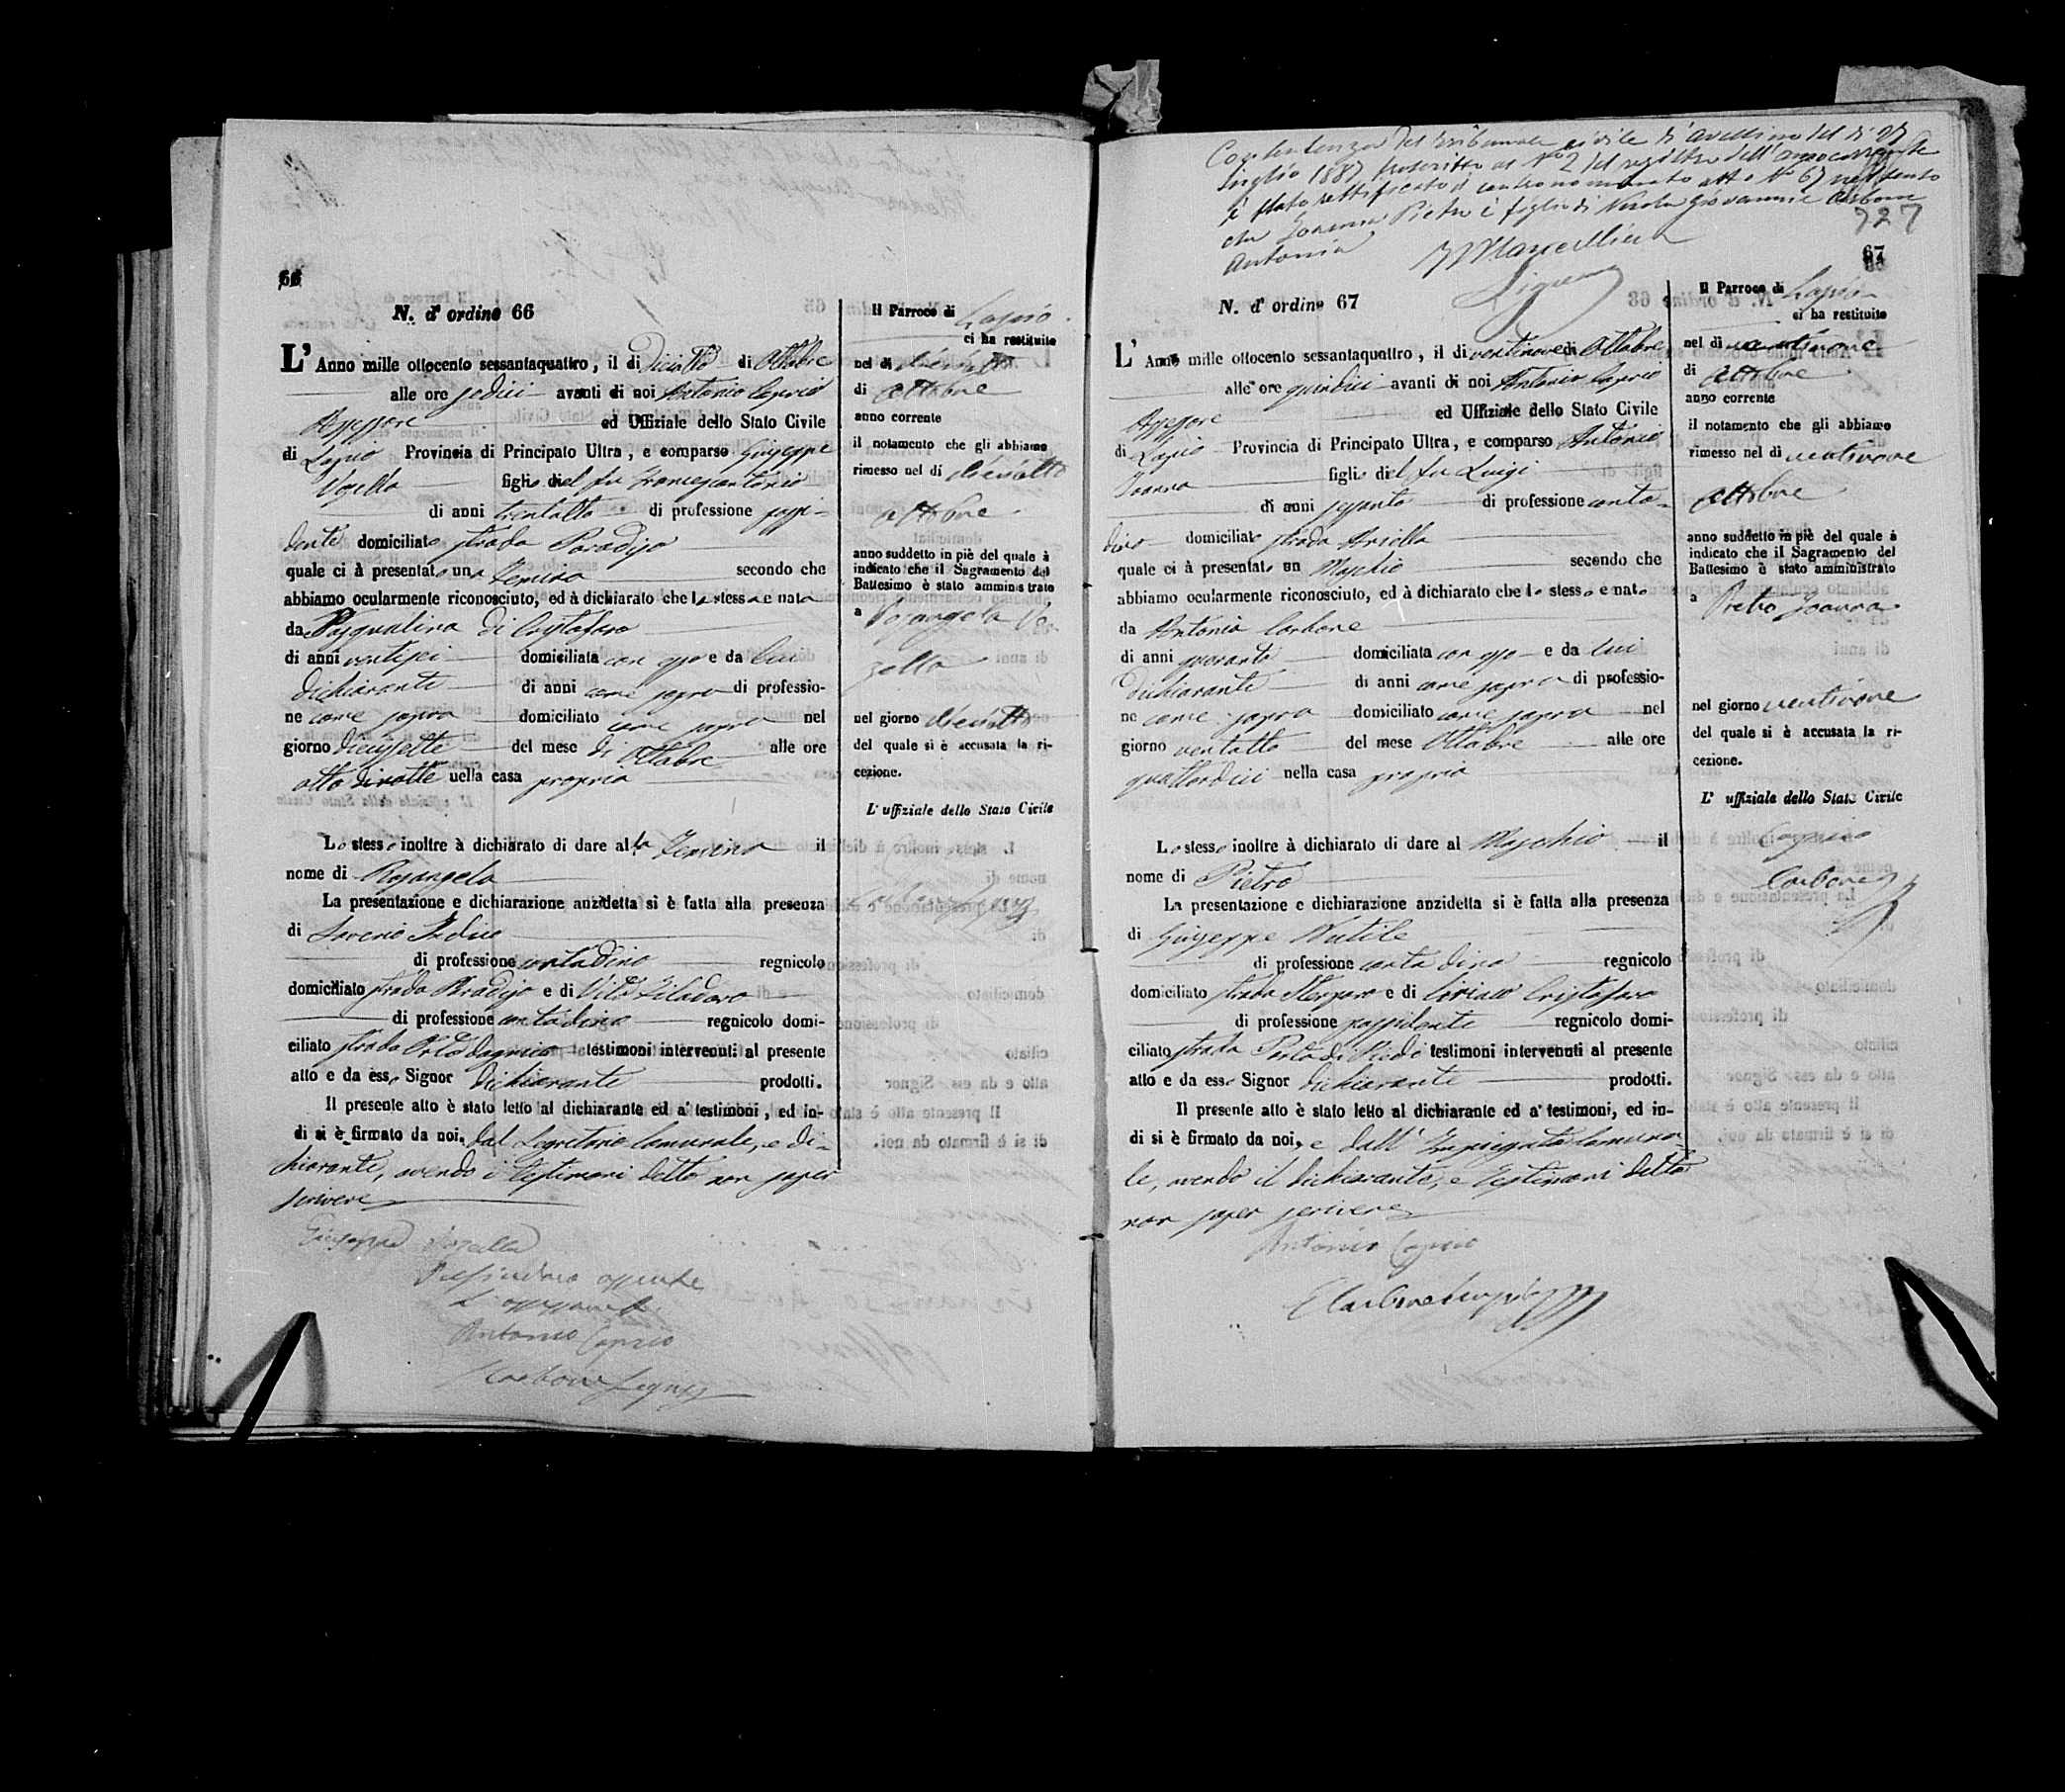 66
N. d' ordine 66
L' Anno mille ottocento sessantaquattro, il di diciotto di Ottobre
alle ore sedici avanti di noi Antonio Caprio
Assessore ed Uffiziale dello Stato Civile
di Lapio Provincia di Principato Ultra, e comparso Giuseppe
figlio del fu Francescantonio
di anni trentotto di professione possi-
dente domiciliato strada Paradiso
quale ci à presentato una Femina secondo che
abbiamo ocularmente riconosciuto, ed à dichiarato che la stessa e nata
da Pasqualina di Cristofaro
di anni ventisei domiciliata con esso e da lui
dichiarante di anni come sopra di professio-
ne come sopra domiciliato come sopra nel
giorno diciassette del mese di Ottobre alle ore
otto di notte nella casa propria
Lo stesso inoltre à dichiarato di dare alla Femina il
nome di Rosangela
La presentazione e dichiarazione anzidetta si è fatta alla presenza
di Saverio
di professione contadino regnicolo
domiciliato strada Paradiso e di Vito Filadoro
di professione contadino regnicolo domi-
ciliato strada testimoni intervenuti al presente
atto e da esso Signor dichiarante prodotti.
Il presente atto è stato letto al dichiarante ed a' testimoni, ed in-
di si è firmato da noi, dal Segretario Comunale, e di-
chiarante, avendo i testimoni detto non saper
scrivere
Giuseppe
Antonio Caprio
Carbone
Il Parroco di Lapio
ci ha restituito
nel di diciotto
di Ottobre
anno corrente
il notamento che gli abbiamo
rimesso nel di diciotto
Ottobre
anno suddetto in piè del quale à
indicato che il Sagramento del
Battesimo è stato amministrato
a Rosangela Vo-
zella
nel giorno diciotto
del quale si è accusata la ri-
cezione.
L' uffiziale dello Stato Civile
Con sentenza del Tribunale civile di Avellino del di 27
Luglio 1887 trascritta al N° 2 del registro dell' anno corrente
è stato rettificato il contronominato atto N° 67 nel senso
che Joanna Pietro è figlio di Nicola Giovanni e Carbone
Antonia
727
67
N. d' ordine 67
L' Anno mille ottocento sessantaquattro, il di ventinove di Ottobre
alle ore quindici avanti di noi Antonio Caprio
Assessore ed Uffiziale dello Stato Civile
di Lapio Provincia di Principato Ultra, e comparso Antonio
Joanna figlio del fu Luigi
di anni sessanta di professione conta-
dino domiciliato strada Ariella
quale ci à presentato un Maschio secondo che
abbiamo ocularmente riconosciuto, ed à dichiarato che lo stesso e nato
da Antonia Carbone
di anni quaranta domiciliata con esso e da lui
dichiarante di anni come sopra di professio-
ne come sopra domiciliato come sopra nel
giorno ventotto del mese Ottobre alle ore
quattordici nella casa propria
Lo stesso inoltre à dichiarato di dare al Maschio il
nome di Pietro
La presentazione e dichiarazione anzidetta si è fatta alla presenza
di Giuseppe Nutile
di professione contadino regnicolo
domiciliato strada e di Ciriaco Cristofaro
di professione possidente regnicolo domi-
ciliato strada testimoni intervenuti al presente
atto e da esso Signor dichiarante prodotti.
Il presente atto è stato letto al dichiarante ed a' testimoni, ed in-
di si è firmato da noi, e dall' Impiegato Comuna-
le, avendo il dichiarante, e testimoni detto
non saper scrivere
Antonio Caprio
Il Parroco di Lapio
ci ha restituito
nel di ventinove
di Ottobre
anno corrente
il notamento che gli abbiamo
rimesso nel di ventinove
Ottobre
anno suddetto in piè del quale à
indicato che il Sagramento del
Battesimo è stato amministrato
a Pietro Joanna
nel giorno ventinove
del quale si è accusata la ri-
cezione.
L' uffiziale dello Stato Civile
Caprio
Carbone